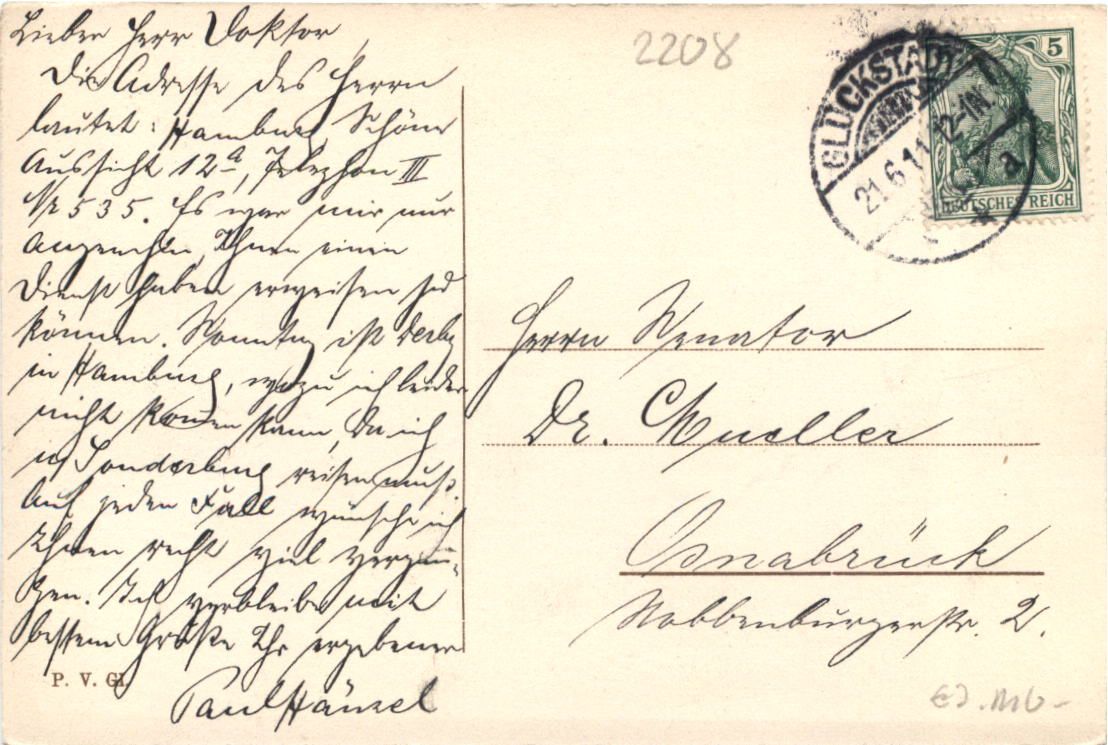 Lieber Herr Doktor,
Die Adresse des Herrn
lautet: Hamburg, Schöne
Aussicht 12a, Telephon III
Nr 535. Es war mir nur
angenehm, Ihnen einen
Dienst haben erweisen zu
können. Sonntag ist Derby
in Hamburg, wozu ich leider
nicht kom̄en kann, da ich
n/ Sonderburg reisen muß.
Auf jeden Fall wünsche ich
Ihnen recht viel Vergnü-
gen. Ich verbleibe mit
bestem Gruße Ihr ergebener
Paul Hänsel
P. V. Gl.
2208
GLÜCKSTADT
21.6.11. 12-1N.
a
5
DEUTSCHES REICH
Herrn Senator
Dr. Mueller
Osnabrück
Nobbenburgerstr. 2.